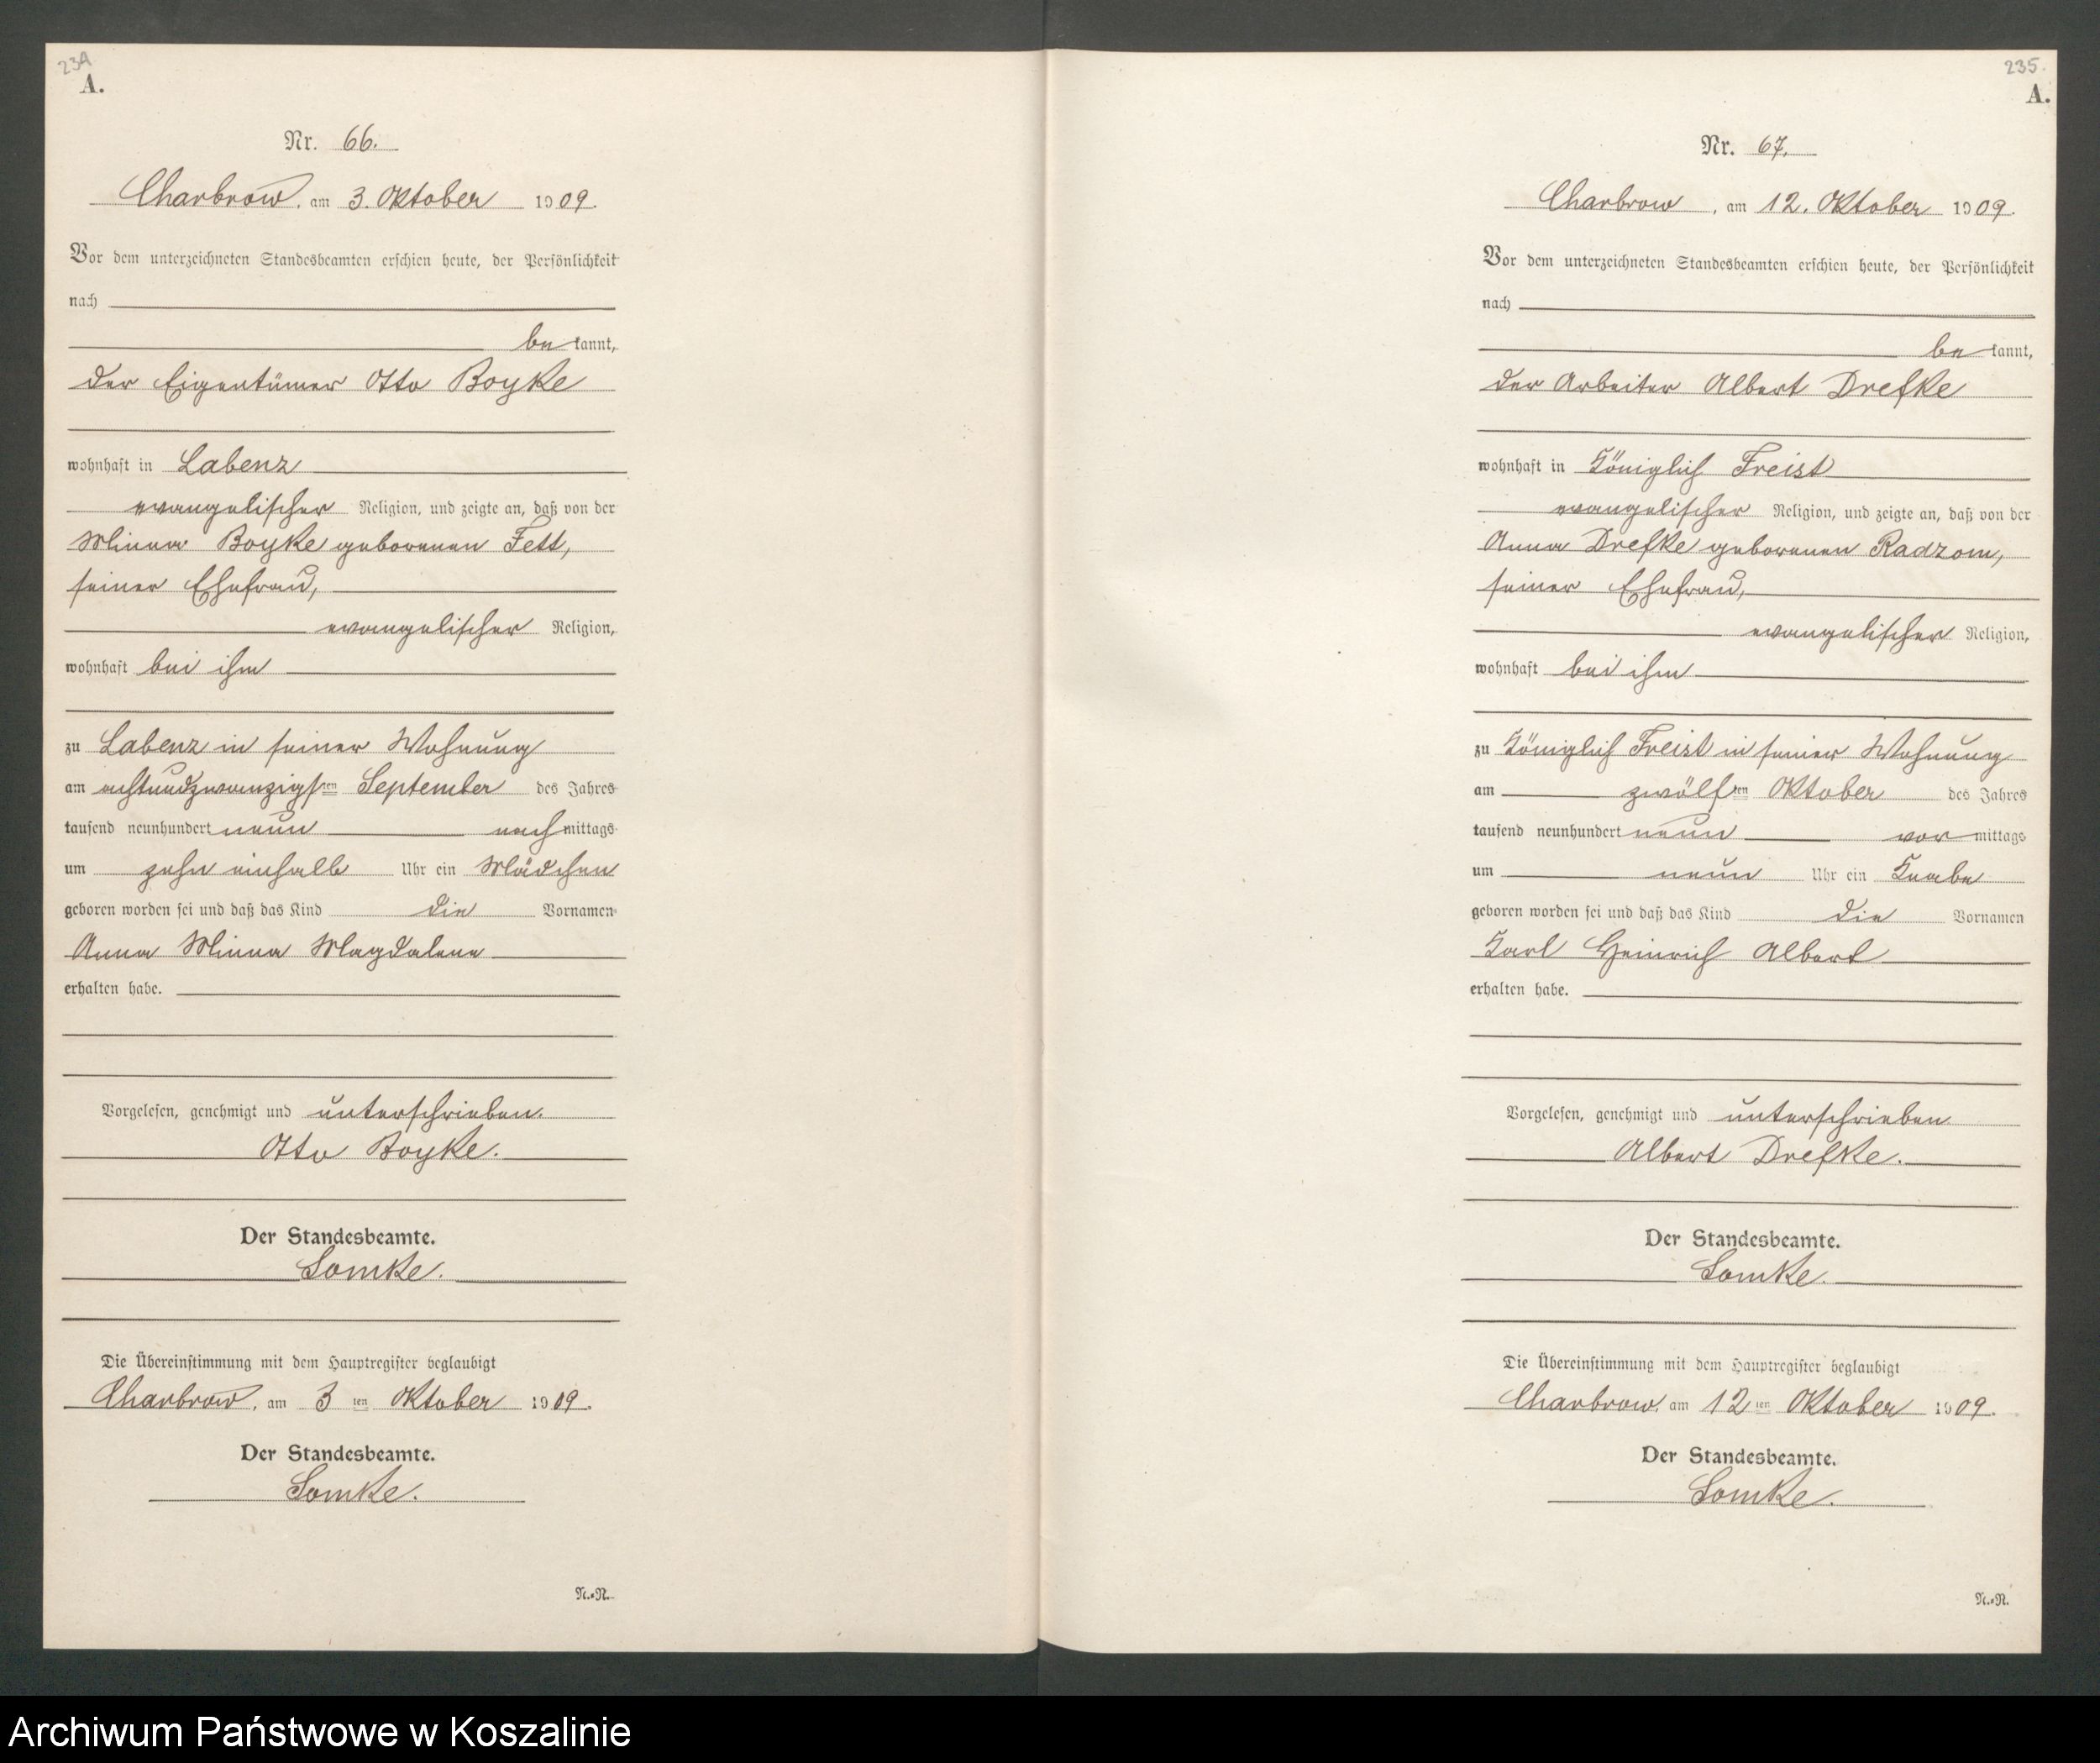 234
A.
Nr. 66.
Charbrow, am 3. Oktober 1909.
Vor dem unterzeichneten Standesbeamten erschien heute, der Persönlichkeit
nach
bekannt,
der Eigentümer Otto Boyke
wohnhaft in Labenz
evangelischer Religion, und zeigte an, daß von der
Minna Boyke geborenen Fett,
seiner Ehefrau,
evangelischer Religion,
wohnhaft bei ihm
zu Labenz in seiner Wohnung
am achtundzwanzigsten September des Jahres
tausend neunhundert neun nachmittags
um zehn einhalb Uhr ein Mädchen
geboren worden sei und daß das Kind die Vornamen
Anna Minna Magdalena
erhalten habe.
Vorgelesen, genehmigt und unterschrieben.
Otto Boyke.
Der Standesbeamte.
Lomke.
Die Übereinstimmung mit dem Hauptregister beglaubigt
Charbrow, am 3ten Oktober 1909.
Der Standesbeamte.
Lomke.
N.=R.
235.
A.
Nr. 67.
Charbrow, am 12. Oktober 1909.
Vor dem unterzeichneten Standesbeamten erschien heute, der Persönlichkeit
nach
bekannt,
der Arbeiter Albert Drefke
wohnhaft in Königlich Freist
evangelischer Religion, und zeigte an, daß von der
Anna Drefke geborenen Radzom,
seiner Ehefrau,
evangelischer Religion,
wohnhaft bei ihm
zu Königlich Freist in seiner Wohnung
am zwölften Oktober des Jahres
tausend neunhundert neun vormittags
um neun Uhr ein Knabe
geboren worden sei und daß das Kind die Vornamen
Karl Heinrich Albert
erhalten habe.
Vorgelesen, genehmigt und unterschrieben
Albert Drefke.
Der Standesbeamte.
Lomke.
Die Übereinstimmung mit dem Hauptregister beglaubigt
Charbrow, am 12ten Oktober 1909.
Der Standesbeamte.
Lomke.
N.=R.
Archiwum Państwowe w Koszalinie